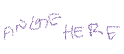 ANGIE HERE